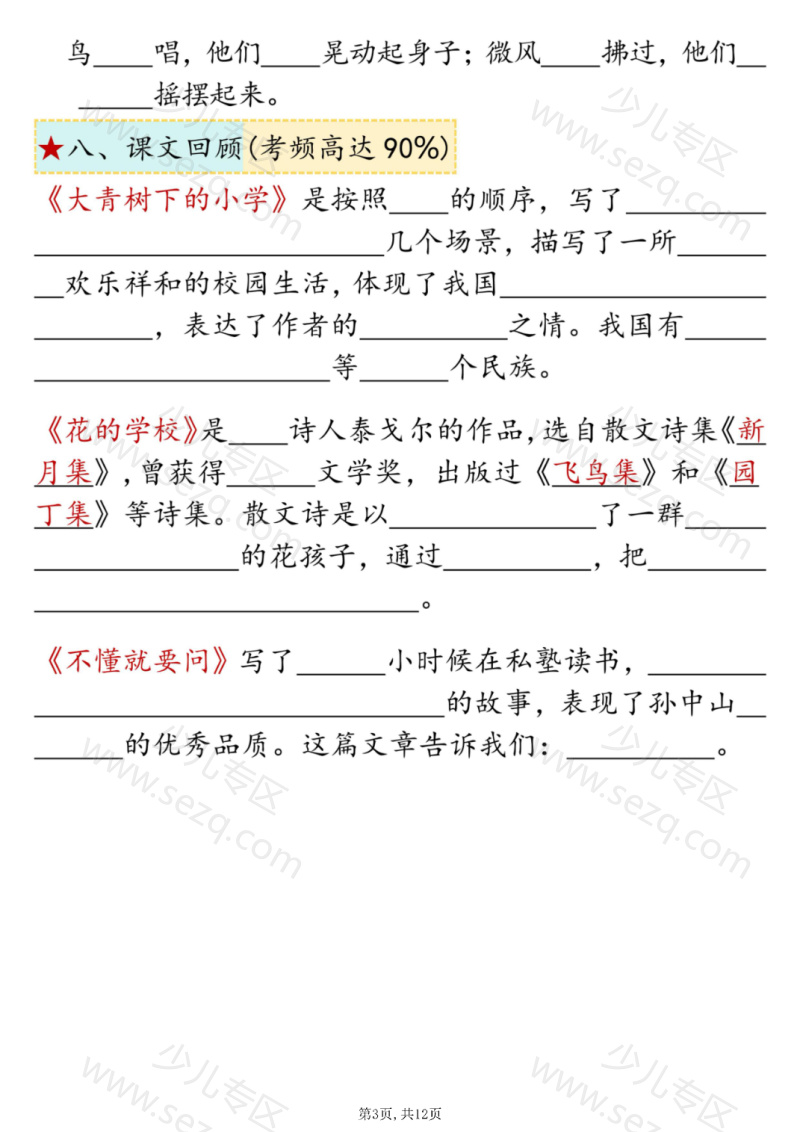 鸟____唱，他们____晃动起身子；微风____拂过，他们__
_____摇摆起来。
★八、课文回顾(考频高达90%)
《大青树下的小学》是按照____的顺序，写了__________
________________________几个场景，描写了一所______
__欢乐祥和的校园生活，体现了我国__________________
________，表达了作者的__________之情。我国有______
____________________等______个民族。
《花的学校》是____诗人泰戈尔的作品，选自散文诗集《新
月集》，曾获得______文学奖，出版过《飞鸟集》和《园
丁集》等诗集。散文诗是以______________了一群______
______________的花孩子，通过__________，把________
__________________________。
《不懂就要问》写了______小时候在私塾读书，________
____________________________的故事，表现了孙中山__
______的优秀品质。这篇文章告诉我们：__________。
少儿专区
www.sezq.com
少儿专区
www.sezq.com
少儿专区
www.sezq.com
少儿专区
www.sezq.com
少儿专区
www.sezq.com
少儿专区
www.sezq.com
少儿专区
www.sezq.com
少儿专区
www.sezq.com
第3页,共12页